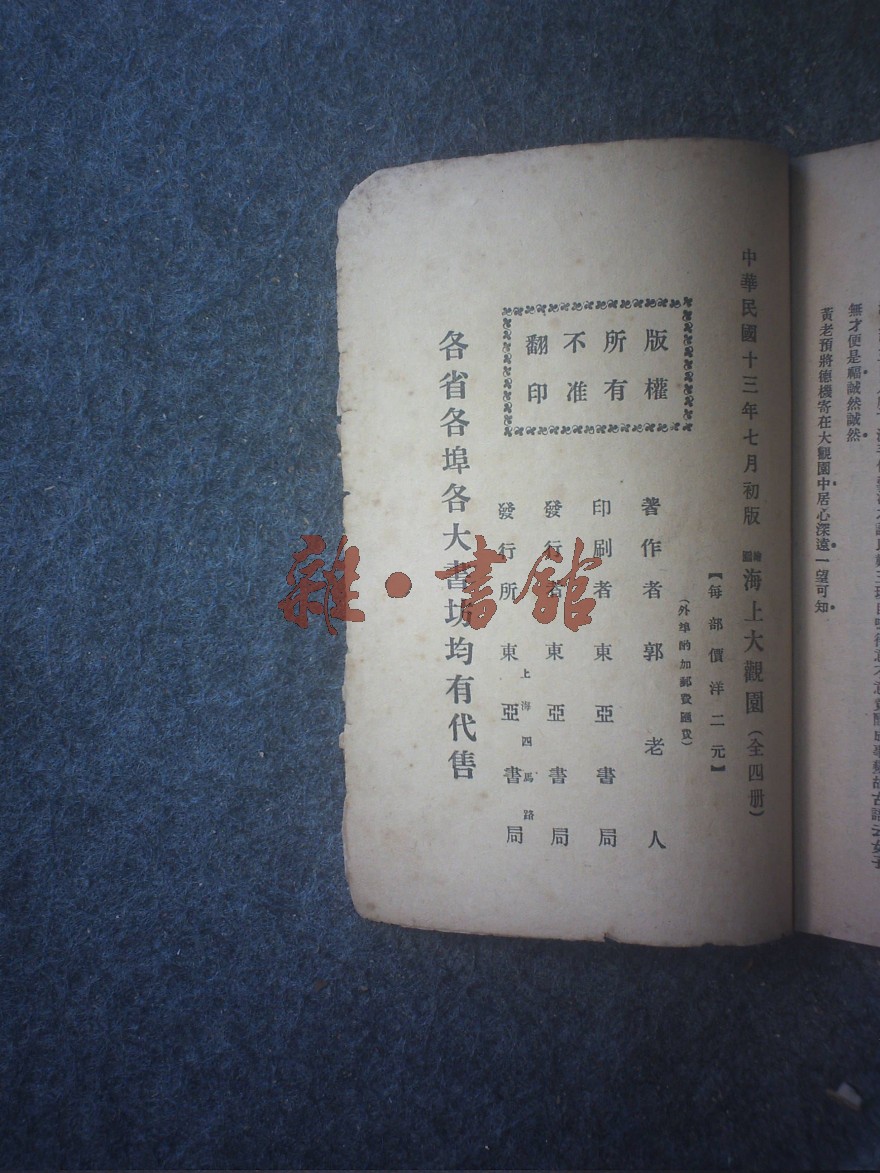 黃老預將德機寄在大觀園中居心深遠一望可知
無才便是福誠然誠然
中華民國十三年七月初版
繪圖海上大觀園(全四册)
【每部價洋二元】
(外埠酌加郵費匯費)
版權所有不准翻印
著作者郭老人
印刷者東亞書局
發行者東亞書局
上海四馬路
發行所東亞書局
各省各埠各大書坊均有代售
雜·書館